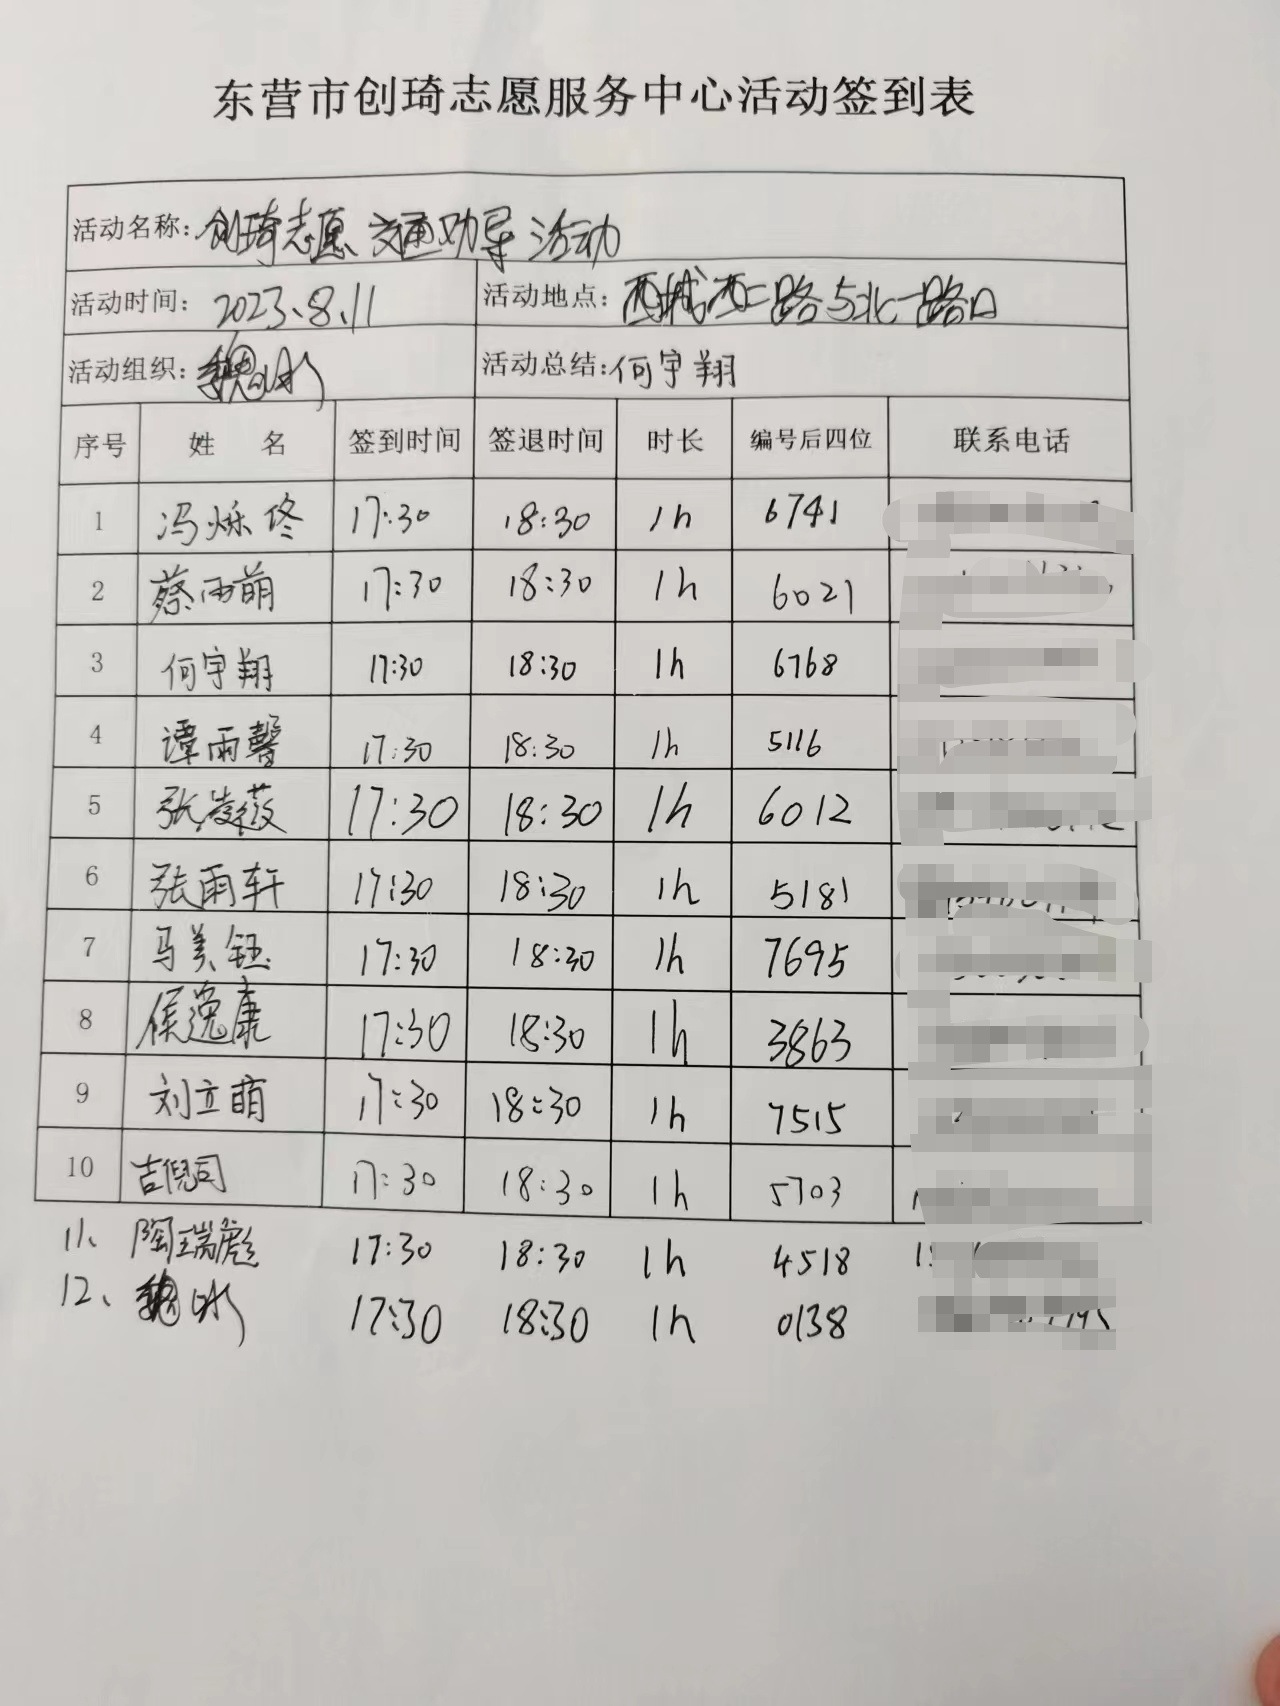 东营市创琦志愿服务中心活动签到表
活动名称: 创琦志愿交通劝导活动
活动时间: 2023.8.11 活动地点: 西城西二路与北一路口
活动组织: 魏冰 活动总结: 何宇翔
序号 姓 名 签到时间 签退时间 时长 编号后四位 联系电话
1 冯烁佟 17:30 18:30 1h 6741
2 蔡雨萌 17:30 18:30 1h 6021
3 何宇翔 17:30 18:30 1h 6768
4 谭雨馨 17:30 18:30 1h 5116
5 张凌薇 17:30 18:30 1h 6012
6 张雨轩 17:30 18:30 1h 5181
7 马美钰 17:30 18:30 1h 7695
8 侯逸康 17:30 18:30 1h 3863
9 刘立萌 17:30 18:30 1h 7515
10 吉倪司 17:30 18:30 1h 5703
11、陶瑞彪 17:30 18:30 1h 4518
12、魏冰 17:30 18:30 1h 0138